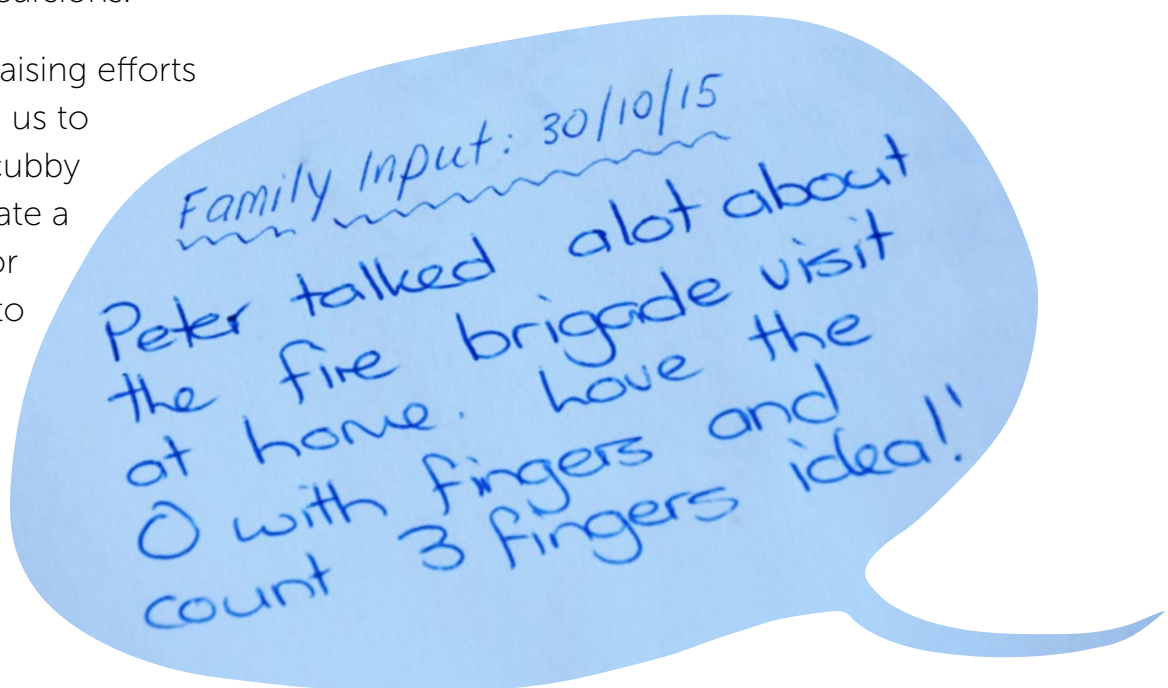 aising efforts
us to
cubby
ate a
or
to
Family Input: 30/10/15
Peter talked alot about
the fire brigade visit
at home. Love the
0 with fingers and
count 3 fingers idea!'